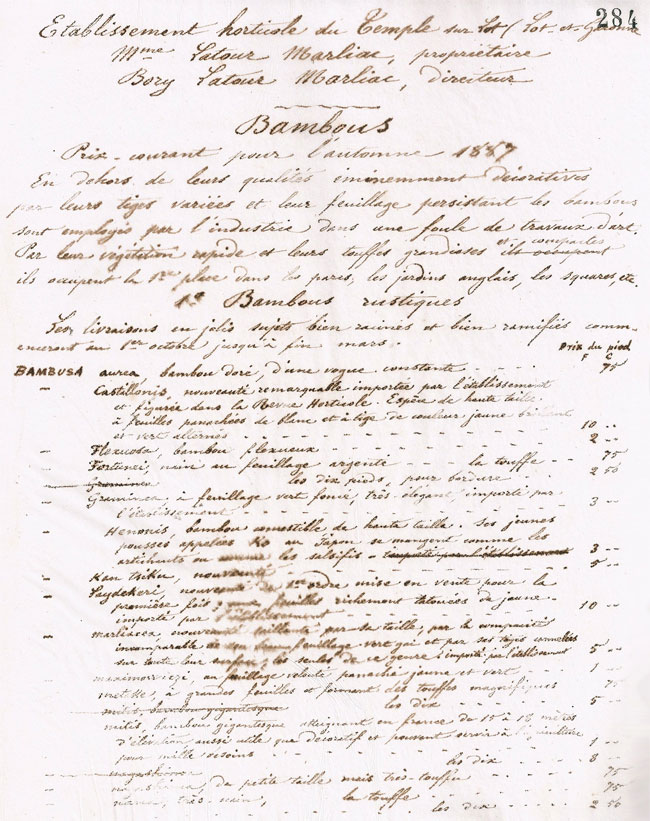 284
Etablissement horticole du Temple sur Lot (Lot-et-Garonne
Mme Latour Marliac, propriétaire
Bory Latour Marliac, directeur
Bambous
Prix-courant pour l'automne 1887
En dehors de leurs qualités éminemment décoratives
par leurs tiges variées et leur feuillage persistant les bambous
sont employés par l'industrie dans une foule de travaux d'art.
Par leur végétation rapide et leurs touffes grandioses et compactes ils occupent
ils occupent la 1ère place dans les parcs, les jardins anglais, les squares, etc.
1° Bambous rustiques
Les livraisons en jolis sujets bien racinés et bien ramifiés comm-
enceront au 1er octobre jusqu'à fin mars.
Prix du pied
F C
BAMBUSA aurea, bambou doré, d'une vogue constante 75
- Castillonis, nouveauté remarquable importée par l'établissement
et figurée dans la Revue Horticole. Espèce de haute taille
à feuilles panachées de blanc et à tige de couleur jaune brillant
et vert alternés 10 ..
- Flexuosa, bambou flexueux 2 ..
- Fortunei, nain au feuillage argenté la touffe 75
- Graminea les dix pieds, pour bordure 2 50
- Graminea, à feuillage vert foncé, très élégant, importé par
l'établissement 3 ..
- Henonis, bambou comestible de haute taille. Ses jeunes
pousses, appelées Ko au Japon se mangent comme les
artichauts ou comme les salsifis importé par l'établissement 3 ..
- Kan tsiku, nouveauté 5 ..
- Laydekeri, nouveauté de 1er ordre mise en vente pour la
première fois, aux feuilles richement tatouées de jaune.
importé par l'établissement 10 ..
- marliacea, nouveauté saillante par sa taille, par la compacité
incomparable de son feuillage vert gai et par ses tiges cannelées
sur toute leur surface; les seules de ce genre; importé par l'établissement 5 ..
maximowiczi, au feuillage velouté panaché jaune et vert 1 ..
metké, à grandes feuilles et formant des touffes magnifiques 75
mitis, bambou gigantesque les dix 5 ..
mitis, bambou gigantesque atteignant en france de 15 à 18 mètres
d'élévation aussi utile que décoratif et pouvant servir à
pour mille besoins 1 ..
les dix 8 ..
de petite taille mais très-touffu 75
nana, très-nain, la touffe 75
les dix 2 50